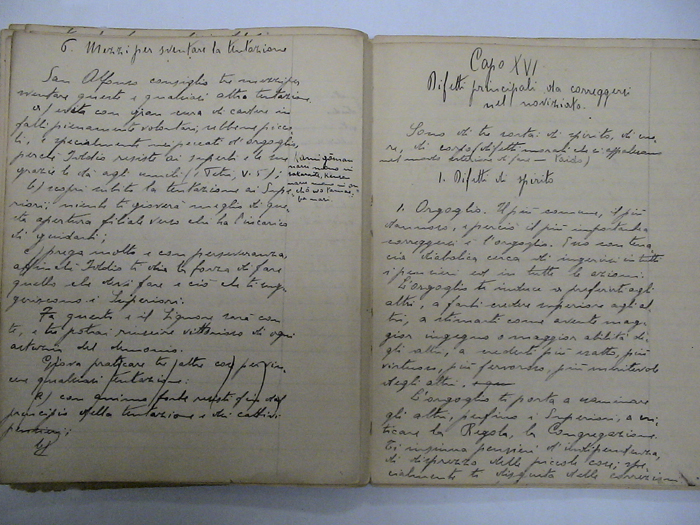 6. Mezzi per sventare la tentazione
San Alfonso consiglia tre mezzi per
sventare questa e qualsiasi altra tentazione.
a) evita con gran cura di cadere in
falli pienamente volontari, sebbene picco-
li, e specialmente nei peccati d'orgoglio,
perché Iddio resiste ai superbi e le sue
grazie le dà agli umili (I Petr, V. 5);
b) scopri subito la tentazione ai Supe-
riori; niente ti gioverà meglio di que-
sta apertura filiale verso chi ha l'incarico
di guidarti;
c) prega molto e con perseveranza,
affinché Iddio ti dia la forza di fare
quello che devi fare e ciò che ti sug-
geriscono i Superiori.
Fa questo e il Signore sarà con
te, e tu potrai riuscire vittorioso di ogni
del demonio.
Giova praticare tre altre cose per vin-
cere qualsiasi tentazione:
a) con animo forte resisti fin dal
principio della tentazione e dei cattivi
pensieri;
b)
Capo XVI
Difetti principali da correggersi
nel noviziato.
Sono di tre sorta: di spirito, di cuo-
re, di corpo (difetti morali che si
nel modo esteriore di fare —
1. Difetti di spirito
1. Orgoglio. Il più comune, il più
dannoso, e perciò il più importante a
correggersi è l'orgoglio. Esso con tena-
cia diabolica cerca di ingerirsi in tutti
i pensieri ed in tutte le azioni.
L'orgoglio ti induce a preferirti agli
altri, a farti credere superiore agli al-
tri, a stimarti come avente mag-
gior ingegno o maggior abilità de-
gli altri, a crederti più esatto, più
virtuoso, più fervoroso, più meritevole
degli altri,
L'orgoglio ti porta a esaminare
gli altri, perfino i Superiori, a cri-
ticare la Regola, la Congregazione.
ti insinua pensieri d'indipendenza,
di disprezzo delle piccole cose; spe-
cialmente ti disgusta delle correzioni